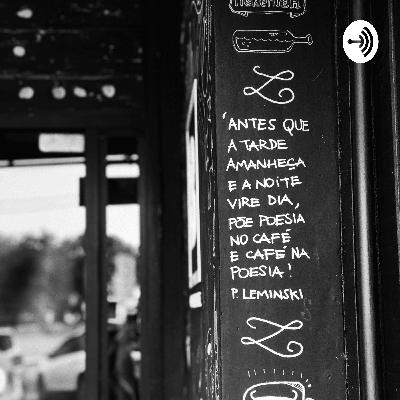 "ANTES QUE
A TARDE
AMANHEÇA
E A NOITE
VIRE DIA,
PÕE POESIA
NO CAFÉ
E CAFÉ NA
POESIA!
P. LEMINSKI